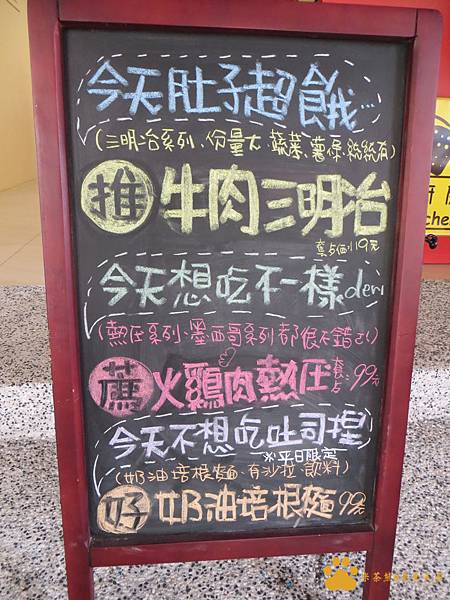 今天肚子超餓...
(三明治系列、份量大、蔬菜、薯條、統統有)
推 牛肉三明治
套点価119元
今天想吃不一樣den
(熱压系列、墨西哥系列都很不錯ㄛ!)
薦 火鷄肉熱压 套点 99元
今天不想吃吐司捏
※平日限定
(奶油培根麵、有沙拉、飲料)
好 奶油培根麵 99元